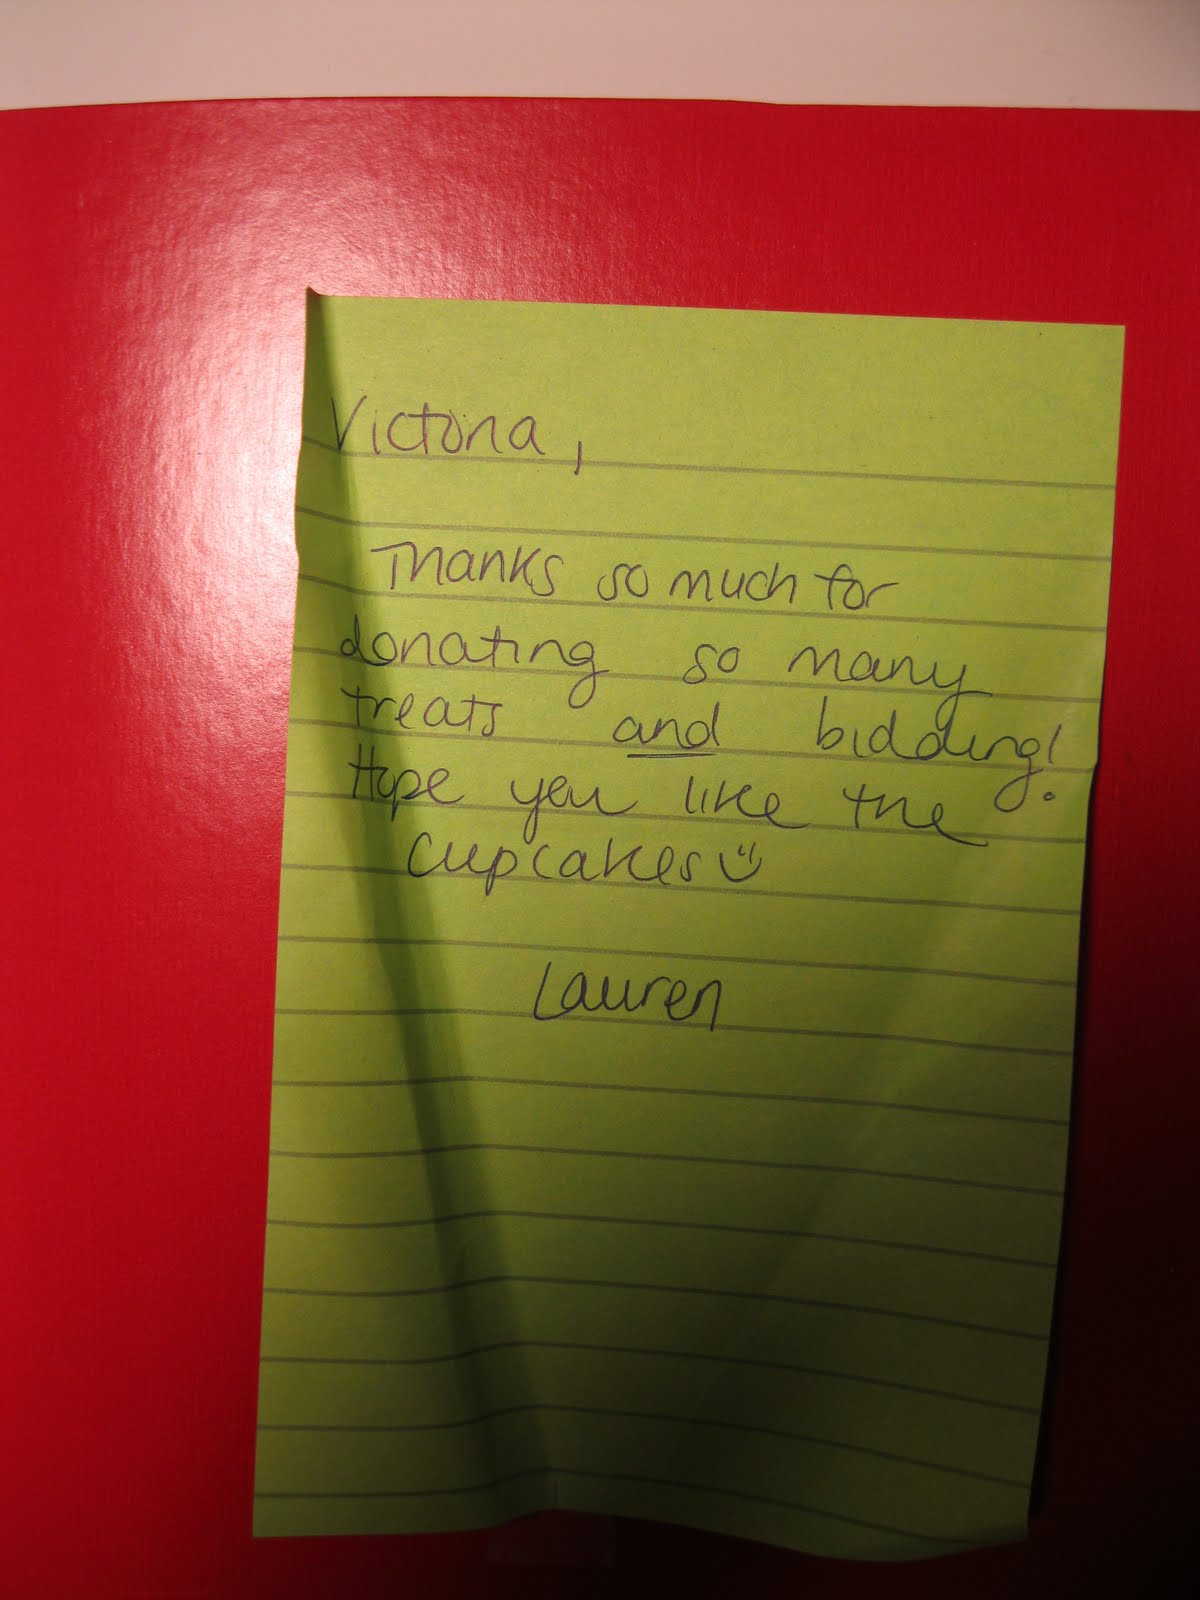 Victoria,
Thanks so much for
donating so many
treats and bidding!
Hope you like the
cupcakes
Lauren